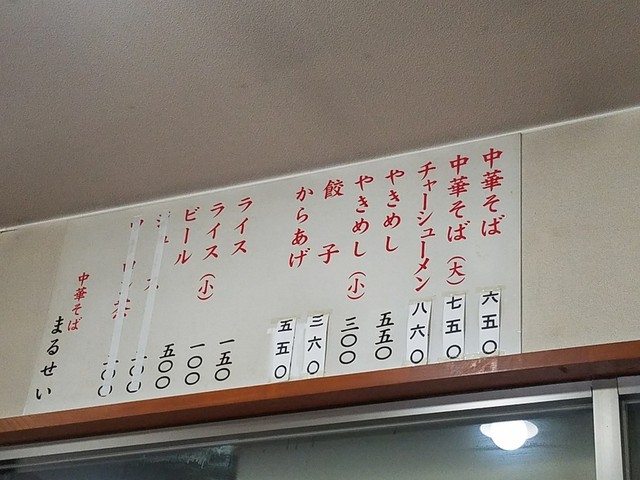 中華そば 六五〇
中華そば（大） 七五〇
チャーシューメン 八六〇
やきめし 五五〇
やきめし（小） 三〇〇
餃子 三六〇
からあげ 五五〇
ライス 一五〇
ライス（小） 一〇〇
ビール 五〇〇
中華そば
まるせい